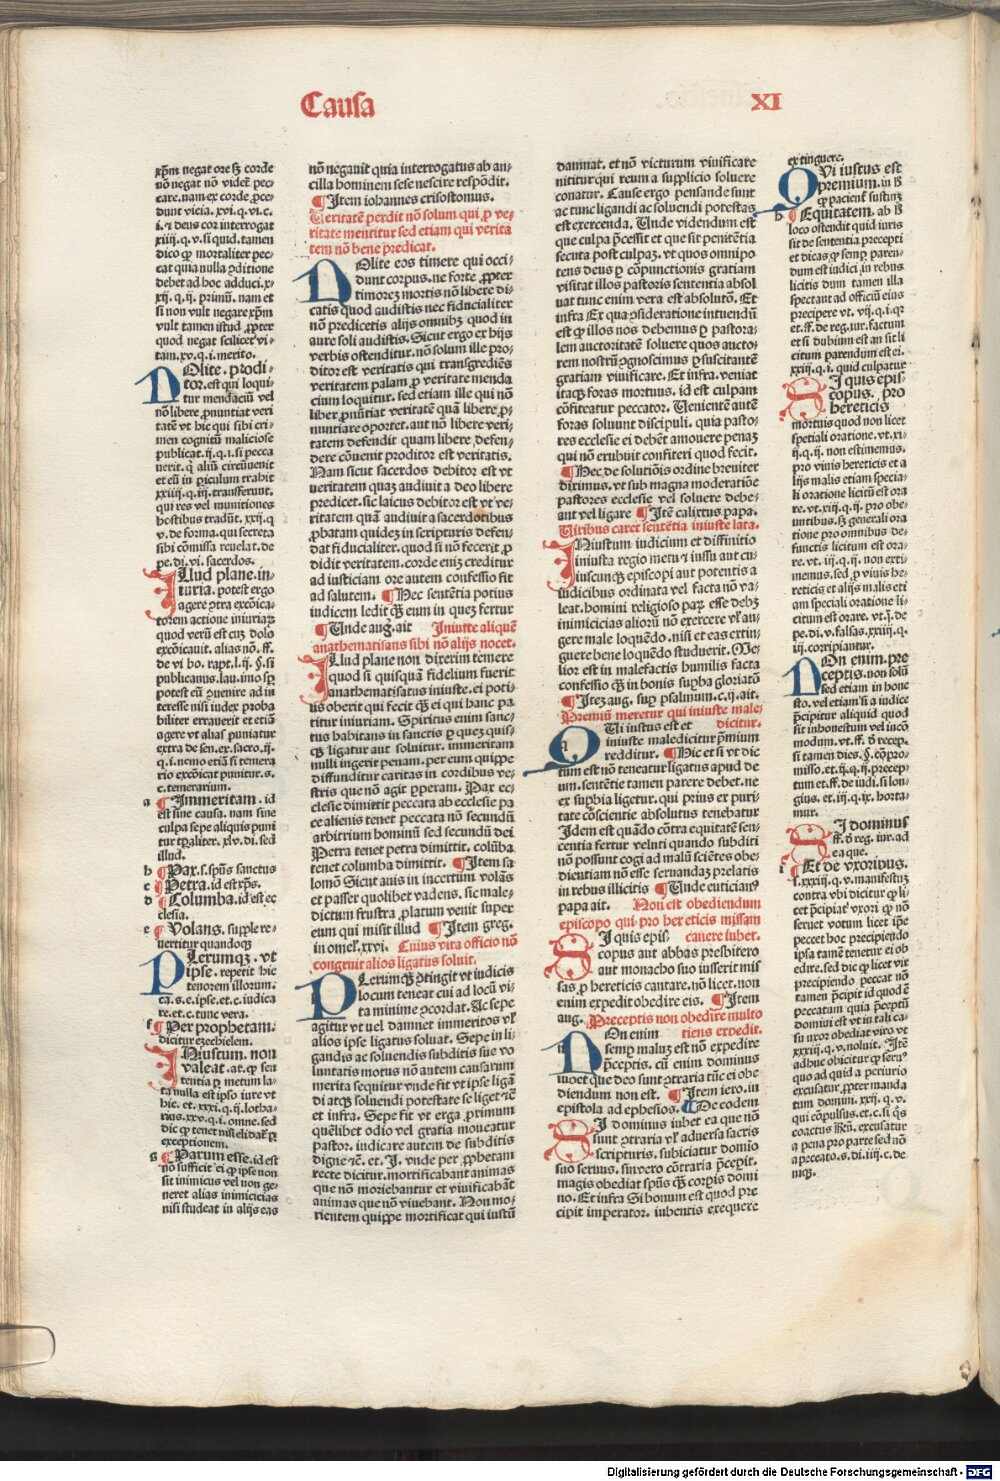 Causa
XI
xp̄m negat ore sꝫ corde
nō negat nō videt̄ pec⸗
care. nam ex corde ꝓce⸗
dunt vicia. xvi. q. vi. c.
i. ⁊ deus cor interrogat
xiiij. q. v. si quid. tamen
dico ꝙ mortaliter pec⸗
cat quia nulla ꝯditione
debet ad hoc adduci. x⸗
xij. q. ij. primū. nam et
si non vult negare xp̄m
vult tamen istud ꝓpter
quod negat scilicet vi⸗
tam. xv. q. i. merito.
NOlite. ꝓdi⸗
tor. est qui loqui
tur mendaciū vel
nō libere ꝓnuntiat veri
tatē vt hic qui sibi cri⸗
men cognitū maliciose
publicat. ij. q. i. si pecca
uerit. q̄ aliū circūuenit
et eū in ꝑiculum trahit
xxiiij. q. iij. transferunt.
qui res vel munitiones
hostibus tradūt. xxij. q
v. de forma. qui secreta
sibi cōmissa reuelat. de
pe. di. vi. sacerdos.
ILlud plane. in⸗
iuria. potest ergo
agere ꝯtra excōica⸗
torem actione iniuriaꝝ
quod verū est cuꝫ dolo
excōicauit. alias nō. ff.
de vi bo. rapt. l. ij. §. si
publicanus. lau. imo sꝑ
potest eū ꝯuenire ad in
teresse nisi iudex proba
biliter errauerit et etiā
agere vt alias puniatur
extra de sen. ex. sacro. ij⸗
q. i. nemo etiā si temera
rio excōicat punitur. s.
c. temerarium.
a ¶ Immeritam. id
est sine causa. nam sine
culpa sepe aliquis puni
tur tꝑaliter. xlv. di. sed
illud.
b ¶ Pax. s. sp̄us sanctus
c ¶ Petra. id est xp̄s.
d ¶ Columba. id est ec
clesia.
e ¶ Volans. supple re⸗
uertitur quandoqꝫ
PLerumqꝫ. vt
ipse. repetit hic
tenorem illorum.
ca. s. e. ipse. et. c. iudica
re. et. c. tunc vera.
f ¶ Per prophetam.
dicitur ezechielem.
INiustum. non
valeat. at. ꝙ sen
tentia ꝑ metum la⸗
ta nulla est ipso iure vt
hic. et. xxxi. q. ij. lotha⸗
rius. xxv. q. i. omne. sed
dic ꝙ tenet nisi elidat̄ ꝑ
exceptionem.
g ¶ Parum esse. id est
nō sufficit ei ꝙ ipse non
sit inimicus vel non ge⸗
neret alias inimicicias
nisi studeat in alijs eas
nō negauit quia interrogatus ab an⸗
cilla hominem sese nescire respōdit.
¶ Item iohannes crisostomus.
Ueritatē perdit nō solum qui ꝓ ve⸗
ritate mentitur sed etiam qui verita
tem nō bene predicat.
NOlite eos timere qui occi⸗
dunt corpus. ne forte ꝓpter
timorez mortis nō libere di⸗
catis quod audistis nec fiducialiter
nō predicetis alijs omnibꝫ quod in
aure soli audistis. Sicut ergo ex hijs
verbis ostenditur. nō solum ille pro⸗
ditor est veritatis qui transgrediēs
veritatem palam ꝓ veritate menda
cium loquitur. sed etiam ille qui nō
liber ꝓnūtiat veritatē quā libere ꝓ⸗
nuntiare oportet. aut nō libere veri⸗
tatem defendit quam libere defen⸗
dere cōuenit proditor est veritatis.
Nam sicut sacerdos debitor est vt
veritatem quaꝫ audiuit a deo libere
predicet. sic laicus debitor est vt ve⸗
ritatem quā audiuit a sacerdotibus
ꝓbatam quideꝫ in scripturis defen⸗
dat fiducialiter. quod si nō fecerit ꝓ
didit veritatem. corde eniꝫ creditur
ad iusticiam ore autem confessio fit
ad salutem. ¶ Hec sententia potius
iudicem ledit qꝫ eum in quez fertur
¶ Unde aug. ait Iniuste aliquē
anathematisans sibi nō alijs nocet.
ILlud plane non dixerim temere
quod si quisquā fidelium fuerit
anathematisatus iniuste. ei poti⸗
us oberit qui fecit qꝫ ei qui hanc pa
titur iniuriam. Spiritus enim sanc⸗
tus habitans in sanctis ꝑ quez quis⸗
qꝫ ligatur aut soluitur. immeritam
nulli ingerit penam. per eum quippe
diffunditur caritas in cordibus ve⸗
stris que nō agit ꝑperam. Pax ec⸗
clesie dimittit peccata ab ecclesie pa
ce alienis tenet peccata nō secundū
arbitrium hominū sed secundū dei
Petra tenet petra dimittit. colūba
tenet columba dimittit. ¶ Item sa
lomō Sicut auis in incertum volās
et passer quolibet vadens. sic male⸗
dictum frustra ꝓlatum venit super
eum qui misit illud ¶ Item greg.
in omel. xxvi. Cuius vita officio nō
congruit alios ligatus soluit.
PLerumqꝫ ꝯtingit vt iudicis
locum teneat cui ad locū vi⸗
ta minime ꝯcordat. Ac sepe
agitur vt vel damnet immeritos vł
alios ipse ligatus soluat. Sepe in li⸗
gandis ac soluendis subditis sue vo
luntatis motus nō autem causarum
merita sequitur vnde fit vt ipse ligā
di atqꝫ soluendi potestate se ligat ⁊c̄
et infra. Sepe fit vt erga proximum
quēlibet odio vel gratia moueatur
pastor. indicare autem de subditis
digne ⁊c̄. et. J. vnde per ꝓphetam
recte dicitur. mortificabant animas
que nō moriebantur et viuificabāt
animas que nō viuebant. Non mo⸗
rientem quippe mortificat qui iustū
damnat. et nō victurum viuificare
nititur qui reum a supplicio soluere
conatur. Cause ergo pensande sunt
ac tunc ligandi ac soluendi potestas
est exercenda. Unde videndum est
que culpa p̄cessit et que sit penitētia
secuta post culpaꝫ. vt quos omnipo
tens deus ꝑ cōpunctionis gratiam
visitat illos pastoris sententia absol
uat tunc enim vera est absolutō. Et
infra Ex qua ꝯsideratione intuendū
est ꝙ illos nos debemus ꝑ pastora⸗
lem auctoritatē soluere quos aucto⸗
rem nostrū ꝯgnoscimus ꝑ suscitantē
gratiam viuificare. Et infra. veniat
itaqꝫ foras mortuus. id est culpam
cōfiteatur peccator. Uenientē autē
foras soluunt discipuli. quia pasto⸗
res ecclesie ei debēt amouere penaꝫ
qui nō erubuit confiteri quod fecit.
¶ Hec de solutiōis ordine breuiter
diximus. vt sub magna moderatiōe
pastores ecclesie vel soluere debe⸗
ant vel ligare ¶ Itē calixtus papa.
Uiribus caret sentētia iniuste lata.
INiustum iudicium et diffinitio
iniusta regio metu ⁊ iussu aut cu⸗
iuscunqꝫ episcopi aut potentis a
iudicibus ordinata vel facta nō va⸗
leat. homini religioso paꝝ esse debꝫ
inimicicias aliorū nō exercere vł au⸗
gere male loquēdo. nisi et eas extin⸗
guere bene loquēdo studuerit. Me⸗
lior est in malefactis humilis facta
confessio qꝫ in bonis suꝑba gloriatō
¶ Iteꝫ aug. suꝑ psalmum. c. ij. ait.
Premiū meretur qui iniuste male⸗
dicitur.
QUi iustus est et
iniuste maledicitur p̄mium
redditur. ¶ Hic et si vt dic
tum est nō teneatur ligatus apud de
um. sententie tamen parere debet. ne
ex suꝑbia ligetur. qui prius ex puri⸗
tate cōscientie absolutus tenebatur
Idem est quādo cōtra equitatē sen⸗
tentia fertur veluti quando subditi
nō possunt cogi ad malū sciētes obe⸗
dientiam nō esse seruandaꝫ prelatis
in rebus illicitis ¶ Unde euticianꝰ
papa ait. Non est obediendum
episcopo qui pro hereticis missam
canere iubet.
SI quis epis⸗
copus aut abbas presbitero
aut monacho suo iusserit mis
sas ꝓ hereticis cantare. nō licet. non
enim expedit obedire eis. ¶ Item
aug. Preceptis non obedire multo
tiens expedit.
NOn enim
semꝑ maluꝫ est nō expedire
p̄ceptis. cū enim dominus
iuoet que deo sunt ꝯtraria tūc ei obe
diendum non est. ¶ Item iero. in
epistola ad ephesios. ¶ De eodem
SI dominus iubet ea que nō
sunt ꝯtraria vł aduersa sacris
scripturis. subiciatur domio
suo seruus. sinvero cōtraria p̄cepit.
magis obediat spūs qꝫ corꝑis domi
no. Et infra Si bonum est quod pre
cipit imperator. iubentis exequere
extinguere.
QUi iustus est
premium. in ꝟ
ꝙ pacient̄ sustinꝫ
h ¶ Equitatem. ab ꝟ
loco ostendit quid iuris
sit de sententia precepti
et dicas ꝙ semꝑ paren⸗
dum est iudici in rebus
licitis dum tamen illa
spectant ad officiū eius
precipere vt. vij. q. i. qꝫ
et. ff. de reg. iur. factum
et si dubium est an sit li
citum parendum est ei.
xxiij. q. i. quid culpatur
SI quis epis⸗
copus. pro
hereticis
mortuis quod non licet
speciali oratione. vt. xi⸗
ij. q. ij. non estimemus.
pro viuis hereticis et a
lijs malis etiam specia⸗
li oratione licitū est ora
re. vt. xiij. q. ij. pro obe⸗
untibus. sꝫ generali ora
tione pro omnibus de⸗
functis licitum est ora⸗
re. vt. iij. q. ij. non exti⸗
memus. sed ꝓ viuis he⸗
reticis et alijs malis eti
am speciali oratione li⸗
citum est orare. vt. j. de
pe. di. v. falsas. xxiij. q.
iij. corripiantur.
NOn enim. pre
ceptis. non solū
sed etiam in hone
sto. vel etiam si a iudice
p̄cipitur aliquid quod
sit inhonestum vel incō
modum. vt. ff. ꝺ recep.
si tamen dies. §. cōpro⸗
misso. et. ij. q. ij. precep⸗
tum et. ff. de iudi. si lon⸗
gius. et. iij. q. ix. horta⸗
mur.
SI dominus
ff. ꝺ reg. iur. ad
ea que.
i ¶ Et de vxoribus.
s. xxxiij. q. v. manifestuꝫ
contra vbi dicitur ꝙ li⸗
cet p̄cipiat̄ vxori ꝙ nō
seruet votum licet ip̄e
peccet hoc precipiendo
ipsa tamē tenetur ei ob
edire. sed dic ꝙ licet vir
precipiendo peccat nō
tamen p̄cipit id quod ē
peccatum quia p̄ceptū
domini est vt in tali ca⸗
su vxor obediat viro vt
xxxiij. q. v. noluit. Itē
adhuc obicitur ꝙ seruꝰ
quo ad quid a periurio
excusatur ꝓpter manda
tum domin. xxij. q. v.
qui cōpulsus. et. c. si q̄s
coactus Rn̄. excusatur
a pena pro parte sed nō
a peccato. s. di. iiij. c. de
niqꝫ.
Digitalisierung gefördert durch die Deutsche Forschungsgemeinschaft - DFG